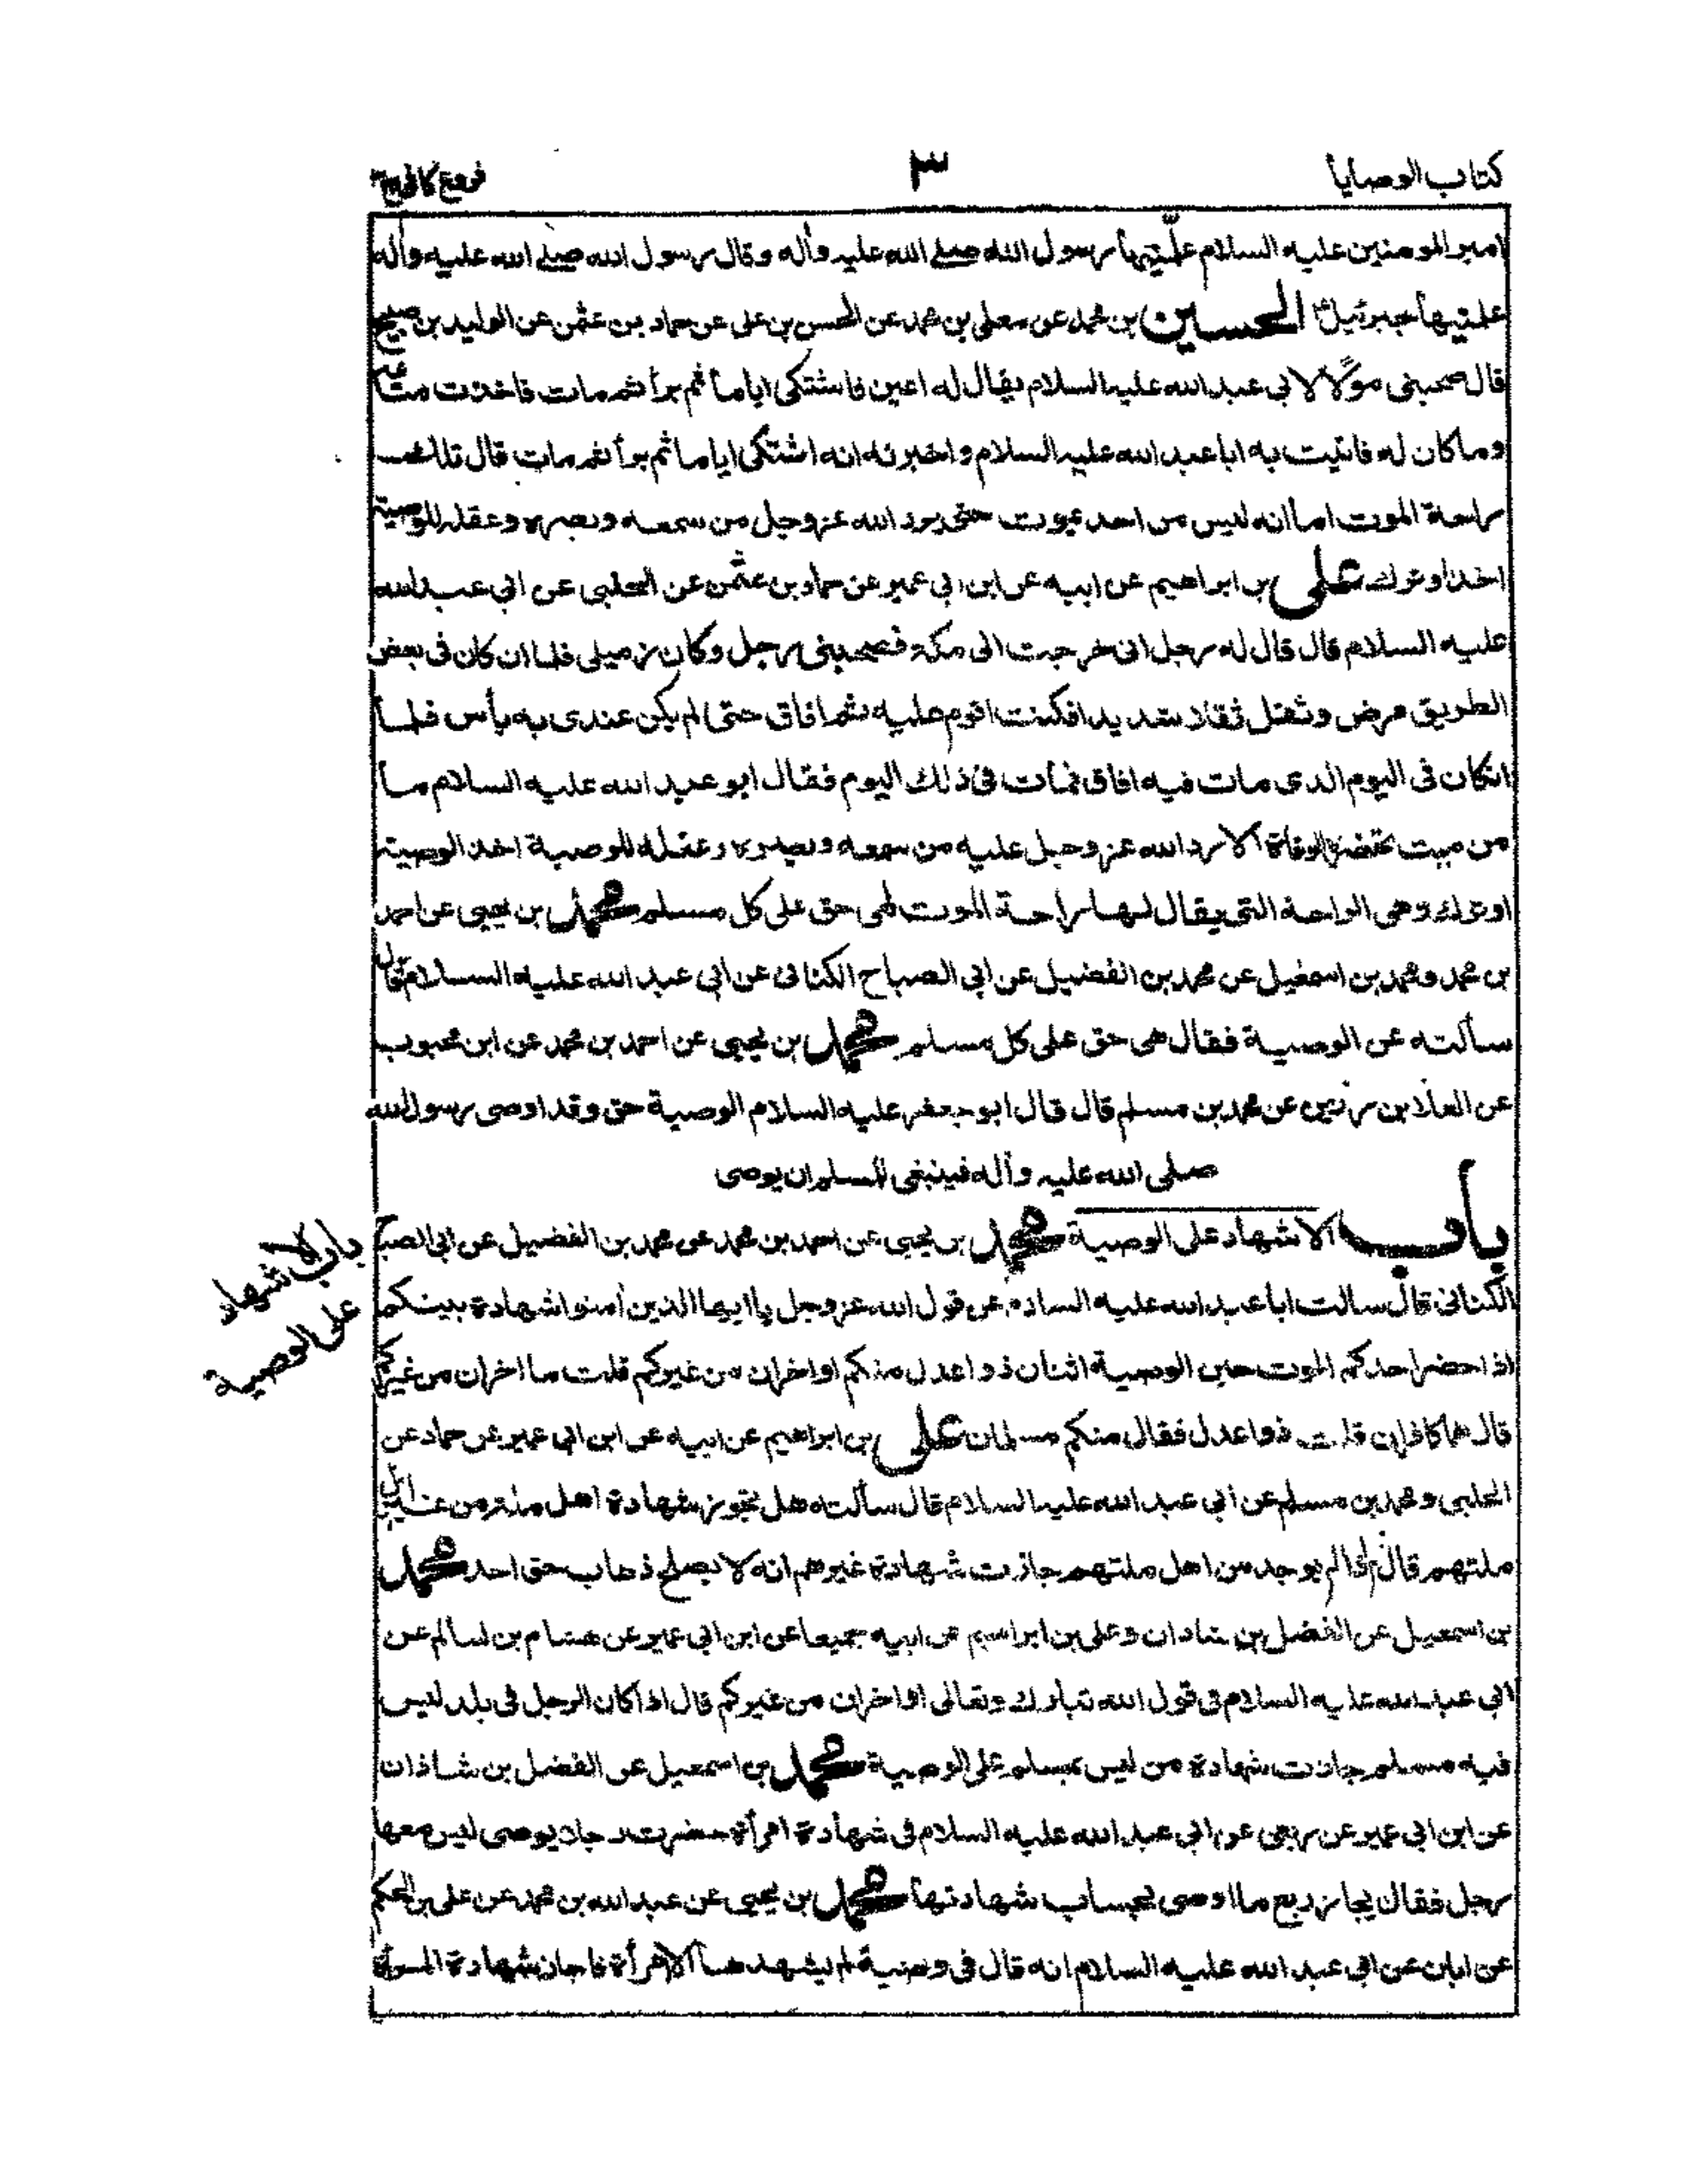 كتاب الوصايا
٣
فروع كافي ج٣
امير المومنين عليه السلام علّمنيها رسول الله صلے الله عليه وأله وقال رسول الله صلے الله عليه وأله
علمنيها جبرئيل الحسين بن محمد عن معلى بن محمد عن الحسن بن على عن حماد بن عثمن عن الوليد بن صبيح
قال صحبنى مولًا لابي عبد الله عليه السلام يقال له اعين فاشتكى اياما ثم برأ ثم مات فاخذت متاعه
وما كان له فاتيت به ابا عبد الله عليه السلام واخبرته انه اشتكى اياما ثم برأ ثم مات قال تلك
راحة الموت اما انه ليس من احد يموت حتى يرد الله عز وجل من سمعه وبصره وعقله للوصية
اخذ او ترك على بن ابراهيم عن ابيه عن ابن ابي عمير عن حماد بن عثمن عن الحلبي عن ابي عبد الله
عليه السلام قال قال له رجل انى خرجت الى مكة فصحبنى رجل وكان زميلى فلما ان كان فى بعض
الطريق مرض وثقل ثقلا شديدا فكنت اقوم عليه ثم افاق حتى لم يكن عندى به بأس فلما
انكان فى اليوم الذى مات فيه افاق فمات فى ذلك اليوم فقال ابو عبد الله عليه السلام ما
من ميت تحضره الوفاة الا رد الله عز وجل عليه من سمعه وبصره وعقله للوصية اخذ الوصية
او ترك وهى الراحة التى يقال لها راحة الموت فهى حق على كل مسلم محمد بن يحيى عن احمد
بن محمد ومحمد بن اسمعيل عن محمد بن الفضيل عن ابي الصباح الكنانى عن ابي عبد الله عليه السلام قال
سألته عن الوصية فقال هى حق على كل مسلم محمد بن يحيى عن احمد بن محمد عن ابن محبوب
عن العلا بن رزين عن محمد بن مسلم قال قال ابو جعفر عليه السلام الوصية حق وقد اوصى رسول الله
صلى الله عليه وأله فينبغى للمسلم ان يوصى
باب الاشهاد على الوصية محمد بن يحيى عن احمد بن محمد عن محمد بن الفضيل عن ابي الصباح
باب الاشهاد
على الوصية
الكنانى قال سالت ابا عبد الله عليه السلام عن قول الله عز وجل يا ايها الذين أمنوا شهادة بينكم
اذا حضر احدكم الموت حين الوصية اثنان ذوا عدل منكم او اخران من غيركم قلت ما اخران من غيركم
قال هما كافران قلت ذوا عدل فقال منكم مسلمان على بن ابراهيم عن ابيه عن ابن ابي عمير عن حماد عن
الحلبى ومحمد بن مسلم عن ابي عبد الله عليه السلام قال سألته هل تجوز شهادة اهل ملة من غير اهل
ملتهم قال نعم اذا لم يوجد من اهل ملتهم جازت شهادة غيرهم انه لا يصلح ذهاب حق احد محمد
بن اسمعيل عن الفضل بن شاذان وعلى بن ابراهيم عن ابيه جميعا عن ابن ابي عمير عن هشام بن سالم عن
ابي عبد الله عليه السلام فى قول الله تبارك وتعالى او اخران من غيركم قال اذا كان الرجل فى بلد ليس
فيه مسلم جازت شهادة من ليس بمسلم على الوصية محمد بن اسمعيل عن الفضل بن شاذان
عن ابن ابي عمير عن ربعى عن ابي عبد الله عليه السلام فى شهادة امرأة حضرت رجلا يوصى ليس معها
رجل فقال يجاز ربع ما اوصى بحساب شهادتها محمد بن يحيى عن عبد الله بن محمد عن على بن الحكم
عن ابان عن ابي عبد الله عليه السلام انه قال فى وصية لم يشهدها الا امرأة فاجاز شهادة المرأة